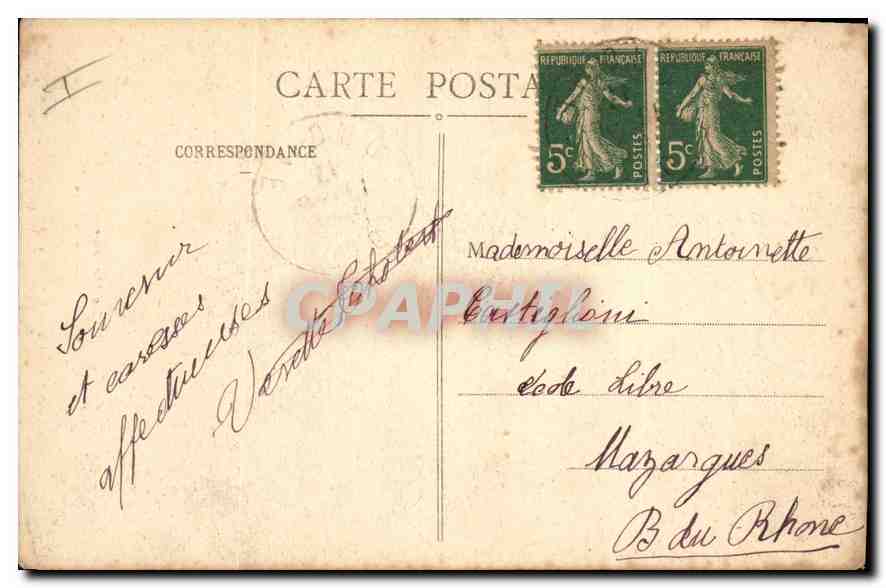 I
CARTE POSTA
REPUBLIQUE FRANÇAISE
5c
POSTES
REPUBLIQUE FRANÇAISE
5c
POSTES
CORRESPONDANCE
Souvenir
et caresses
affectueuses
CPAPHIL
Mademoiselle Antoinette
Casteglioni
école Libre
Mazargues
B du Rhone